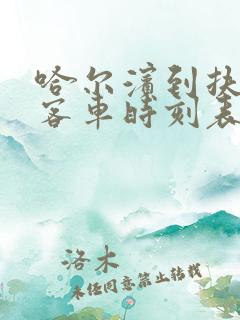 哈尔滨到扶
客车时刻表
洛木
未经同意禁止转载